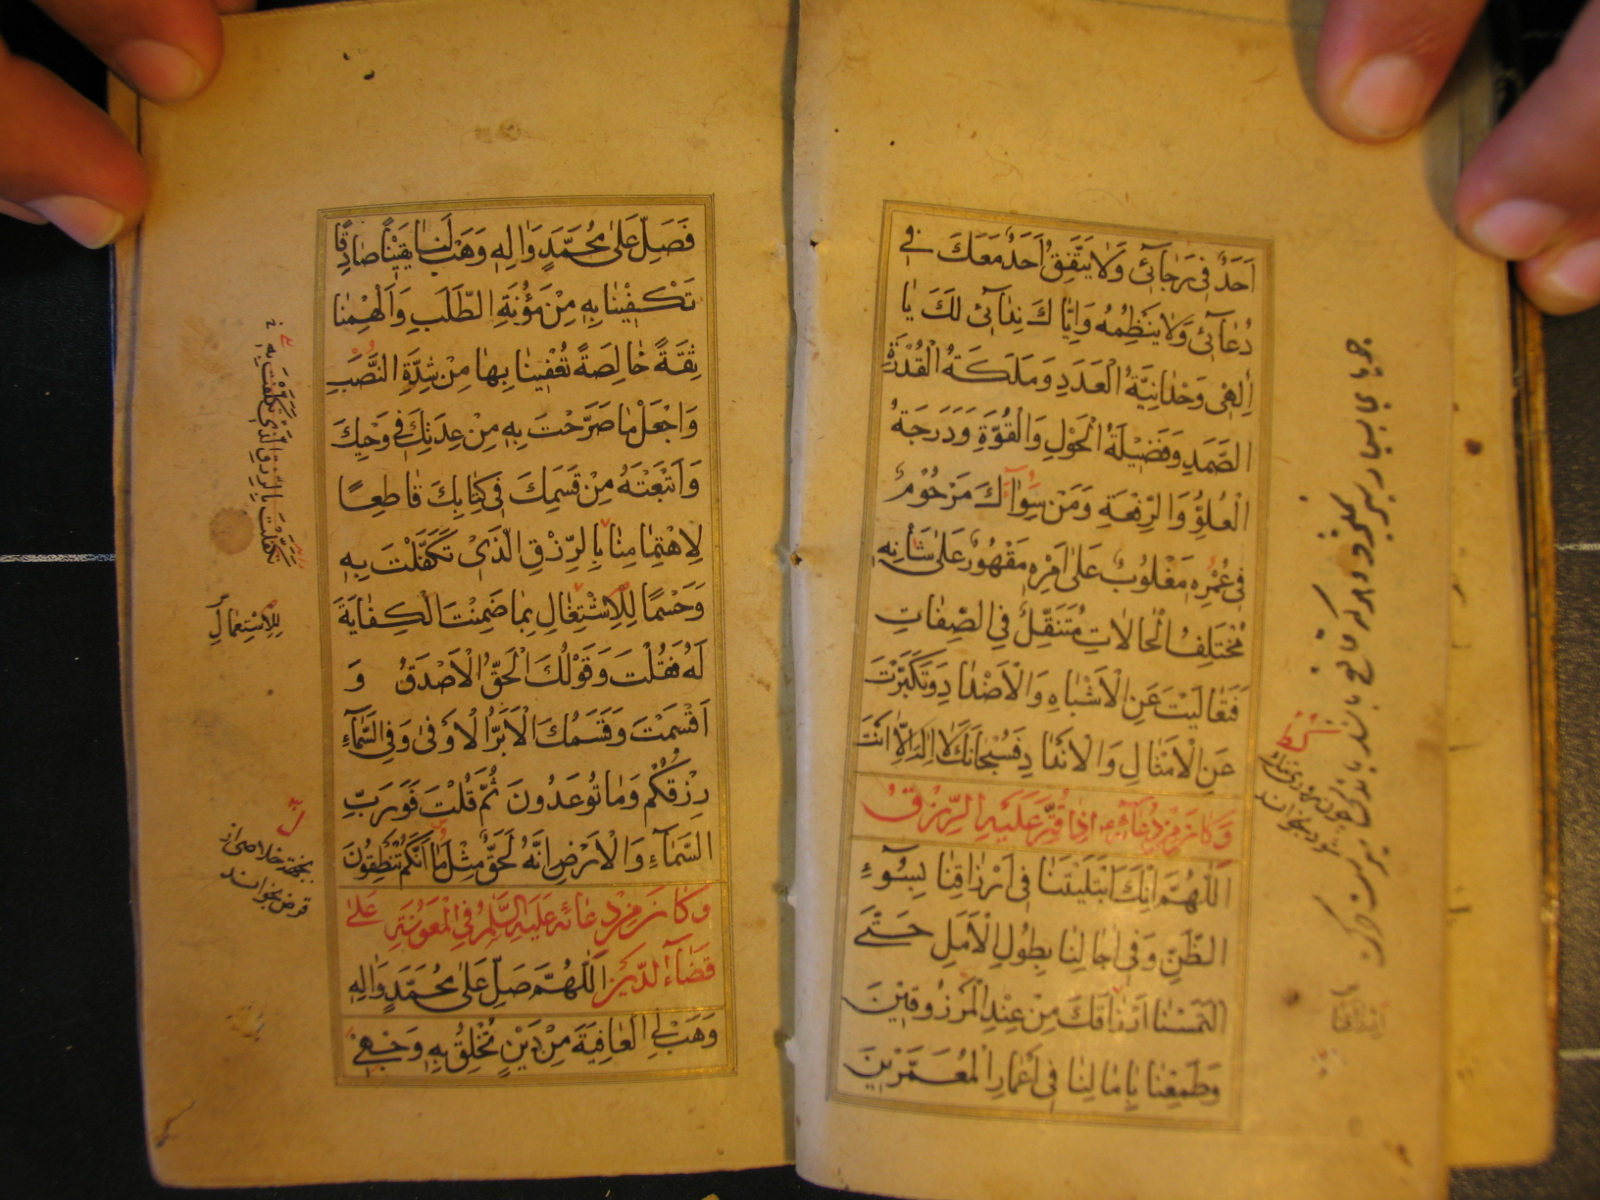 اَحَدٌ فِي رَجَائِي وَلَا يَتَّفِقُ اَحَدٌ مَعَكَ فِي
دُعَائِي وَلَا يَنْظِمُهُ وَاِيَّاكَ نِدَائِي لَكَ يَا
اِلٰهِي وَحْدَانِيَّةُ الْعَدَدِ وَمَلَكَةُ الْقُدْرَةِ
الصَّمَدِ وَفَضِيلَةُ الْحَوْلِ وَالْقُوَّةِ وَدَرَجَةُ
الْعُلُوِّ وَالرِّفْعَةِ وَمَنْ سِوَاكَ مَرْحُومٌ
فِي عُمْرِهِ مَغْلُوبٌ عَلَى اَمْرِهِ مَقْهُورٌ عَلَى شَأْنِهِ
مُخْتَلِفُ الْحَالَاتِ مُتَنَقِّلٌ فِي الصِّفَاتِ
فَتَعَالَيْتَ عَنِ الْاَشْبَاهِ وَالْاَضْدَادِ وَتَكَبَّرْتَ
عَنِ الْاَمْثَالِ وَالْاَنْدَادِ فَسُبْحَانَكَ لَا اِلٰهَ اِلَّا اَنْتَ
وَكَانَ مِنْ دُعَائِهِ اِذَا قُتِّرَ عَلَيْهِ الرِّزْقُ
اَللّٰهُمَّ اِنَّكَ ابْتَلَيْتَنَا فِي اَرْزَاقِنَا بِسُوْءِ
الظَّنِّ وَفِي اٰجَالِنَا بِطُولِ الْاَمَلِ حَتّٰى
الْتَمَسْنَا اَرْزَاقَكَ مِنْ عِنْدِ الْمَرْزُوقِينَ
وَطَمِعْنَا بِاٰمَالِنَا فِي اَعْمَارِ الْمُعَمَّرِينَ
فَصَلِّ عَلٰى مُحَمَّدٍ وَاٰلِهِ وَهَبْ لَنَا يَقِينًا صَادِقًا
تَكْفِينَا بِهِ مِنْ مَؤُنَةِ الطَّلَبِ وَاَلْهِمْنَا
ثِقَةً خَالِصَةً تُعْفِينَا بِهَا مِنْ شِدَّةِ النَّصَبِ
وَاجْعَلْ مَا صَرَّحْتَ بِهِ مِنْ عِدَتِكَ فِي وَحْيِكَ
وَاَتْبَعْتَهُ مِنْ قَسَمِكَ فِي كِتَابِكَ قَاطِعًا
لِاهْتِمَامِنَا بِالرِّزْقِ الَّذِي تَكَفَّلْتَ بِهِ
وَحَسْمًا لِلْاِشْتِغَالِ بِمَا ضَمِنْتَ الْكِفَايَةَ
لَهُ فَقُلْتَ وَقَوْلُكَ الْحَقُّ الْاَصْدَقُ وَ
اَقْسَمْتَ وَقَسَمُكَ الْاَبَرُّ الْاَوْفٰى وَفِي السَّمَاءِ
رِزْقُكُمْ وَمَا تُوعَدُونَ ثُمَّ قُلْتَ فَوَرَبِّ
السَّمَاءِ وَالْاَرْضِ اِنَّهُ لَحَقٌّ مِثْلَ مَا اَنَّكُمْ تَنْطِقُونَ
وَكَانَ مِنْ دُعَائِهِ عَلَيْهِ السَّلٰمُ فِي الْمَعُونَةِ عَلٰى
قَضَاءِ الدَّيْنِ اَللّٰهُمَّ صَلِّ عَلٰى مُحَمَّدٍ وَاٰلِهِ
وَهَبْ لِيَ الْعَافِيَةَ مِنْ دَيْنٍ تُخْلِقُ بِهِ وَجْهِي
تَكَفَّلْتَ بِالرِّزْقِ الَّذِي تَكَفَّلْتَ بِهِ
لِلْاِسْتِعْمَالِ
بجهة خلاصی از
قرض بخواند